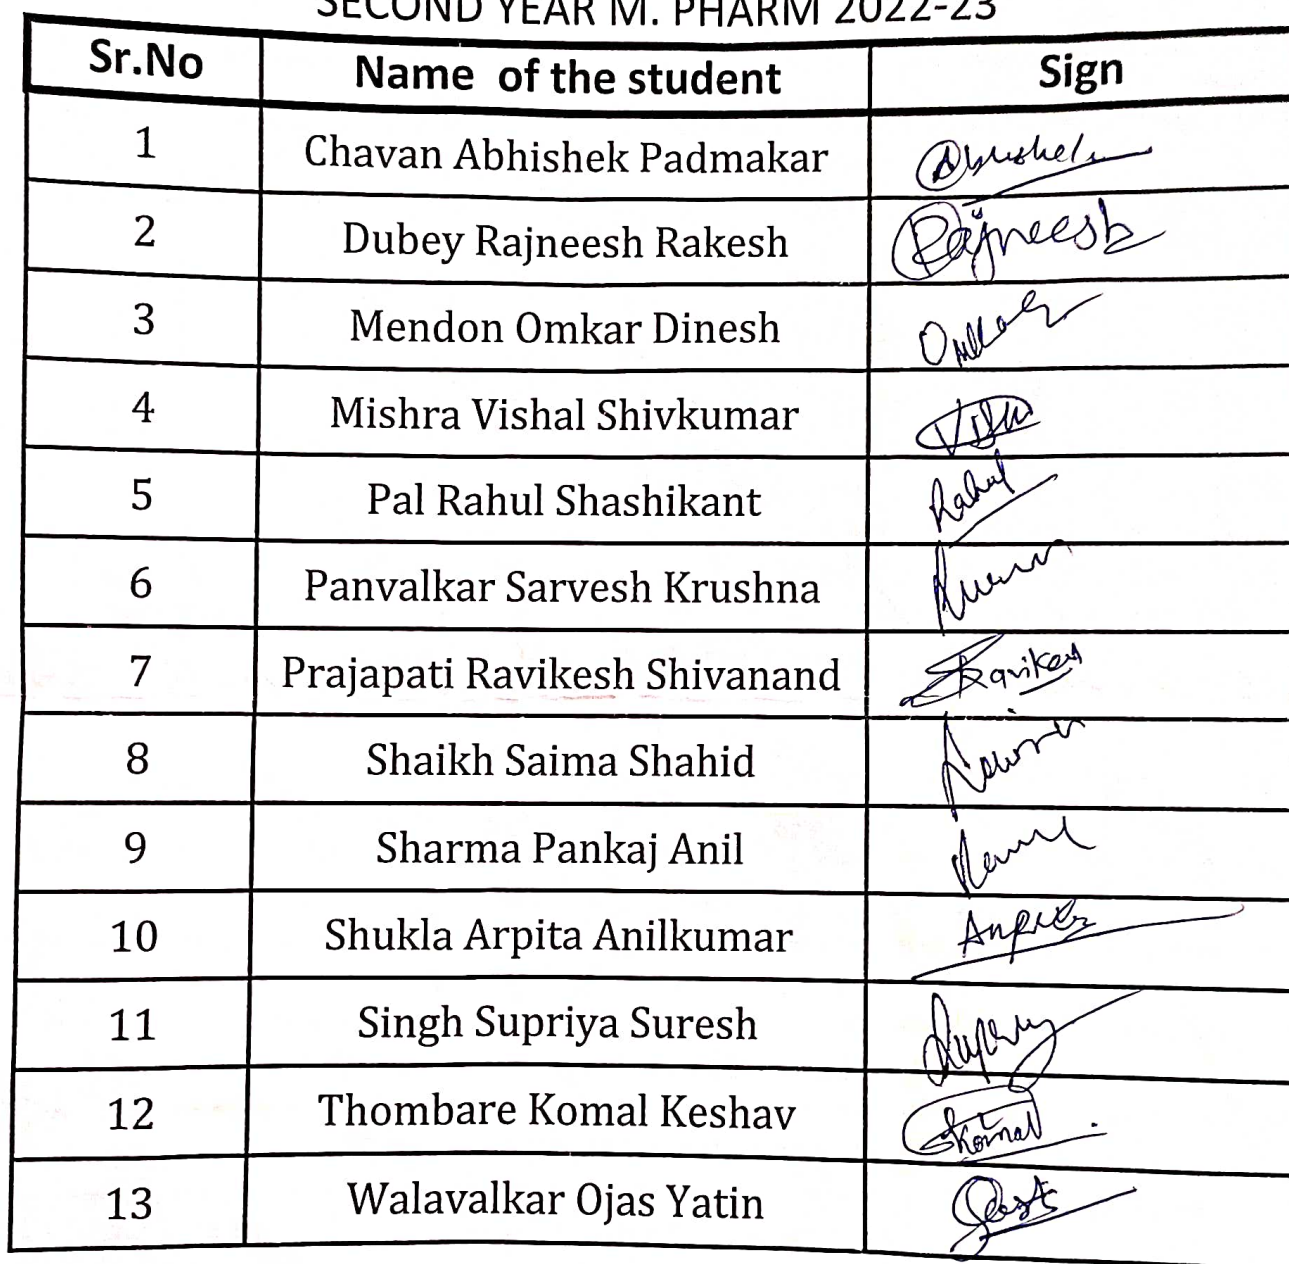 SECOND YEAR M. PHARM 2022-23
Sr.No Name of the student Sign
1 Chavan Abhishek Padmakar Abhishek
2 Dubey Rajneesh Rakesh Rajneesh
3 Mendon Omkar Dinesh Omkar
4 Mishra Vishal Shivkumar
5 Pal Rahul Shashikant Rahul
6 Panvalkar Sarvesh Krushna
7 Prajapati Ravikesh Shivanand Ravikesh
8 Shaikh Saima Shahid
9 Sharma Pankaj Anil
10 Shukla Arpita Anilkumar Arpita
11 Singh Supriya Suresh
12 Thombare Komal Keshav Komal
13 Walavalkar Ojas Yatin